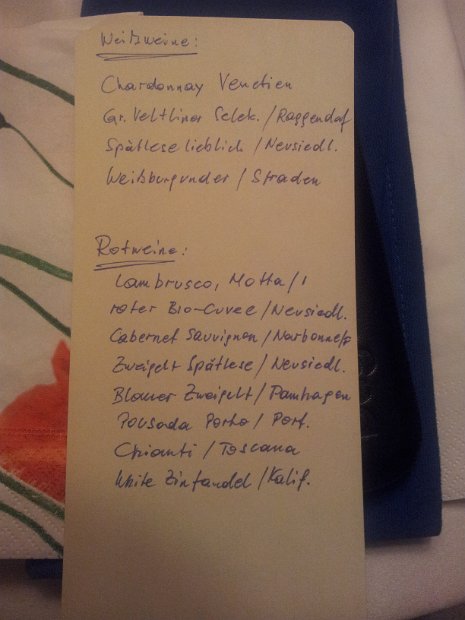 Weißweine:
Chardonnay Venetien
Gr. Veltliner Selek. / Raggendorf
Spätlese lieblich / Neusiedl.
Weißburgunder / Straden
Rotweine:
Lambrusco, Motta / I
roter Bio-Cuvee / Neusiedl.
Cabernet Sauvignon /
Zweigelt Spätlese / Neusiedl.
Blauer Zweigelt / Pamhagen
Pousada Porto / Port.
Chianti / Toscana
White Zinfandel / Kalif.